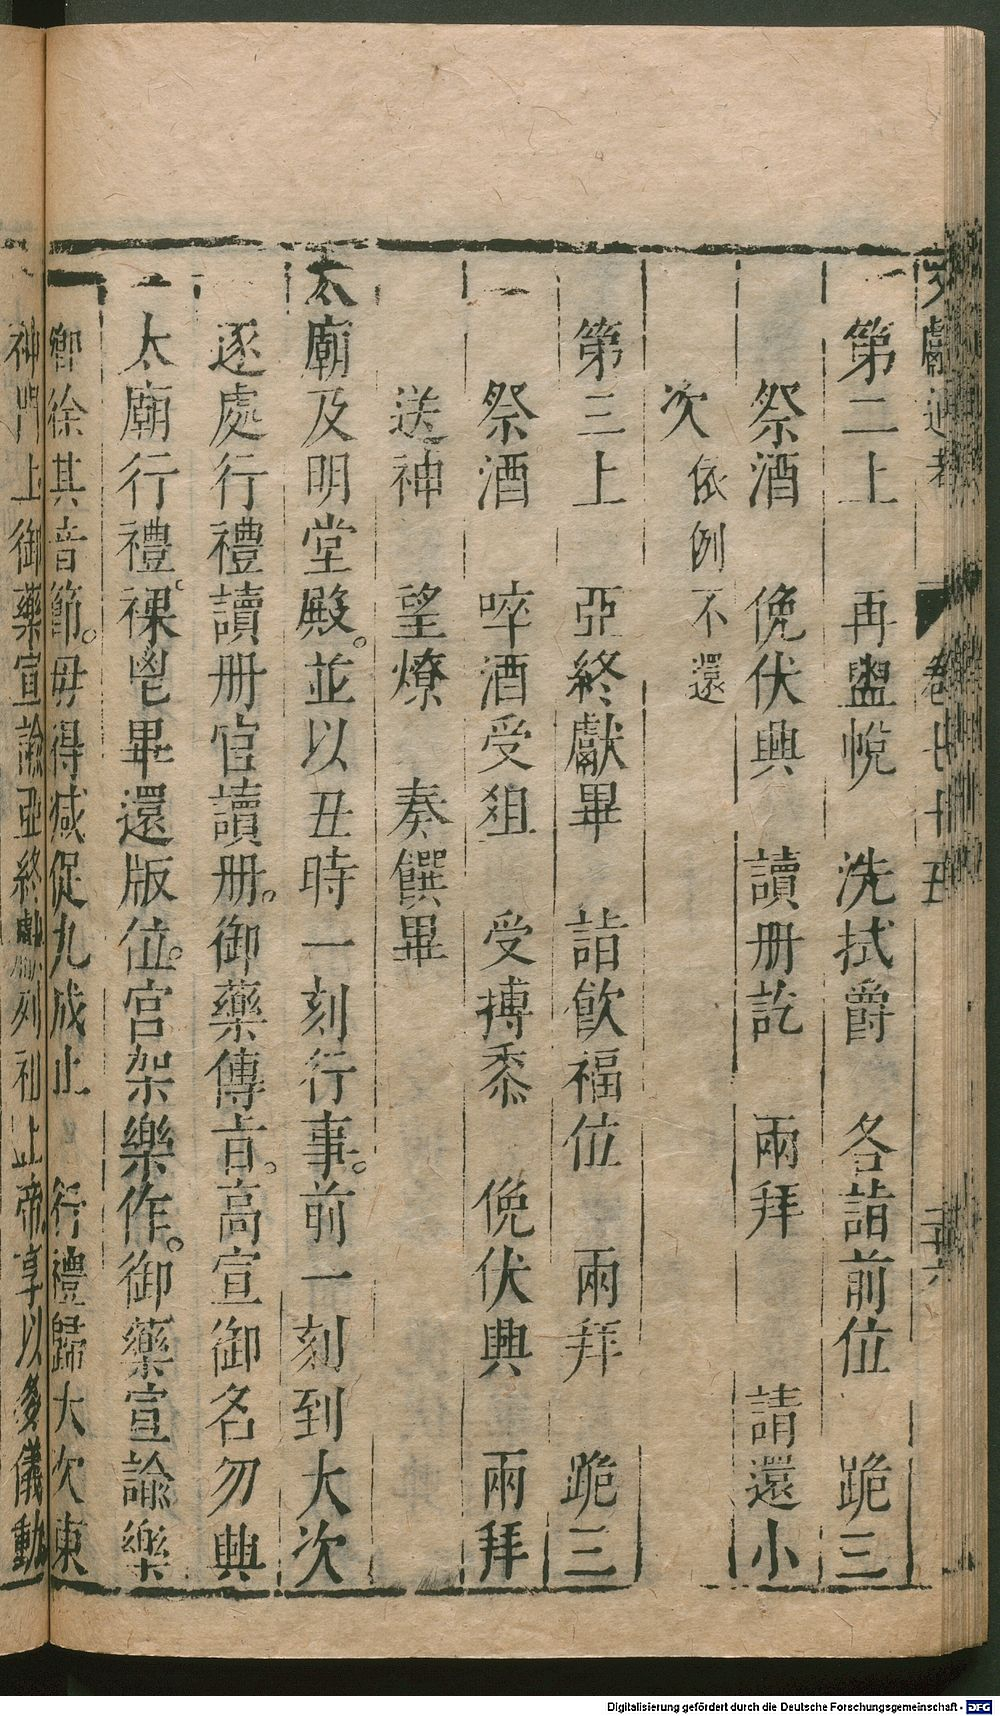 文獻通考　卷七十五　三十六
一第二上　再盥帨　洗拭爵　各詣前位　跪三
祭酒　俛伏興　讀册訖　兩拜　請還小
次依例不還
第三上　亞終獻畢　詣飲福位　兩拜　跪三
一祭酒　啐酒受俎　受摶黍　俛伏興　兩拜
送神　望燎　奏饌畢
太廟及明堂殿。並以丑時一刻行事。前一刻到大次
逐處行禮讀册官讀册。御藥傳旨。高宣御名勿興
一太廟行禮祼鬯畢還版位。宮架樂作。御藥宣諭樂
卿徐其音節。毋得減促九成止　行禮歸大次東
神門上御藥宣諭亞終獻 列祖止帝享以多儀動
Digitalisierung gefördert durch die Deutsche Forschungsgemeinschaft - DFG